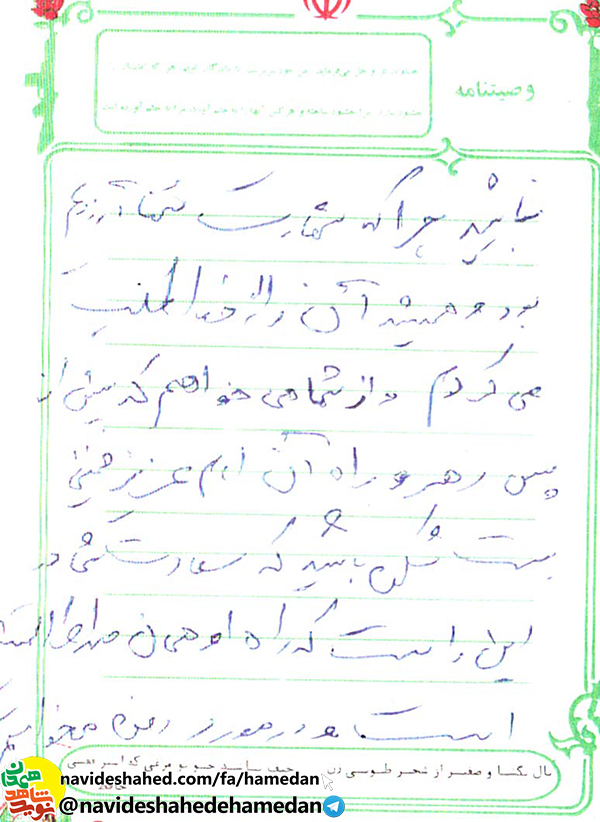 وصیتنامه
نباشید چرا که شهادت تنها آرزویم
بود و همیشه آن را از خدا طلب
می کردم و از شما می خواهم که بیش از
پیش رهرو راه آن امام عزیز خمینی
بت شکن باشید که سعادت شما در
این راه است که راه او همان صراط المستقیم
است و در مورد زنم میخواهم
بال بگشا و صفیر از شجر طوبی زن
حیف باشد چو تو مرغی که اسیر قفسی
navideshahed.com/fa/hamedan
@navideshahedehamedan